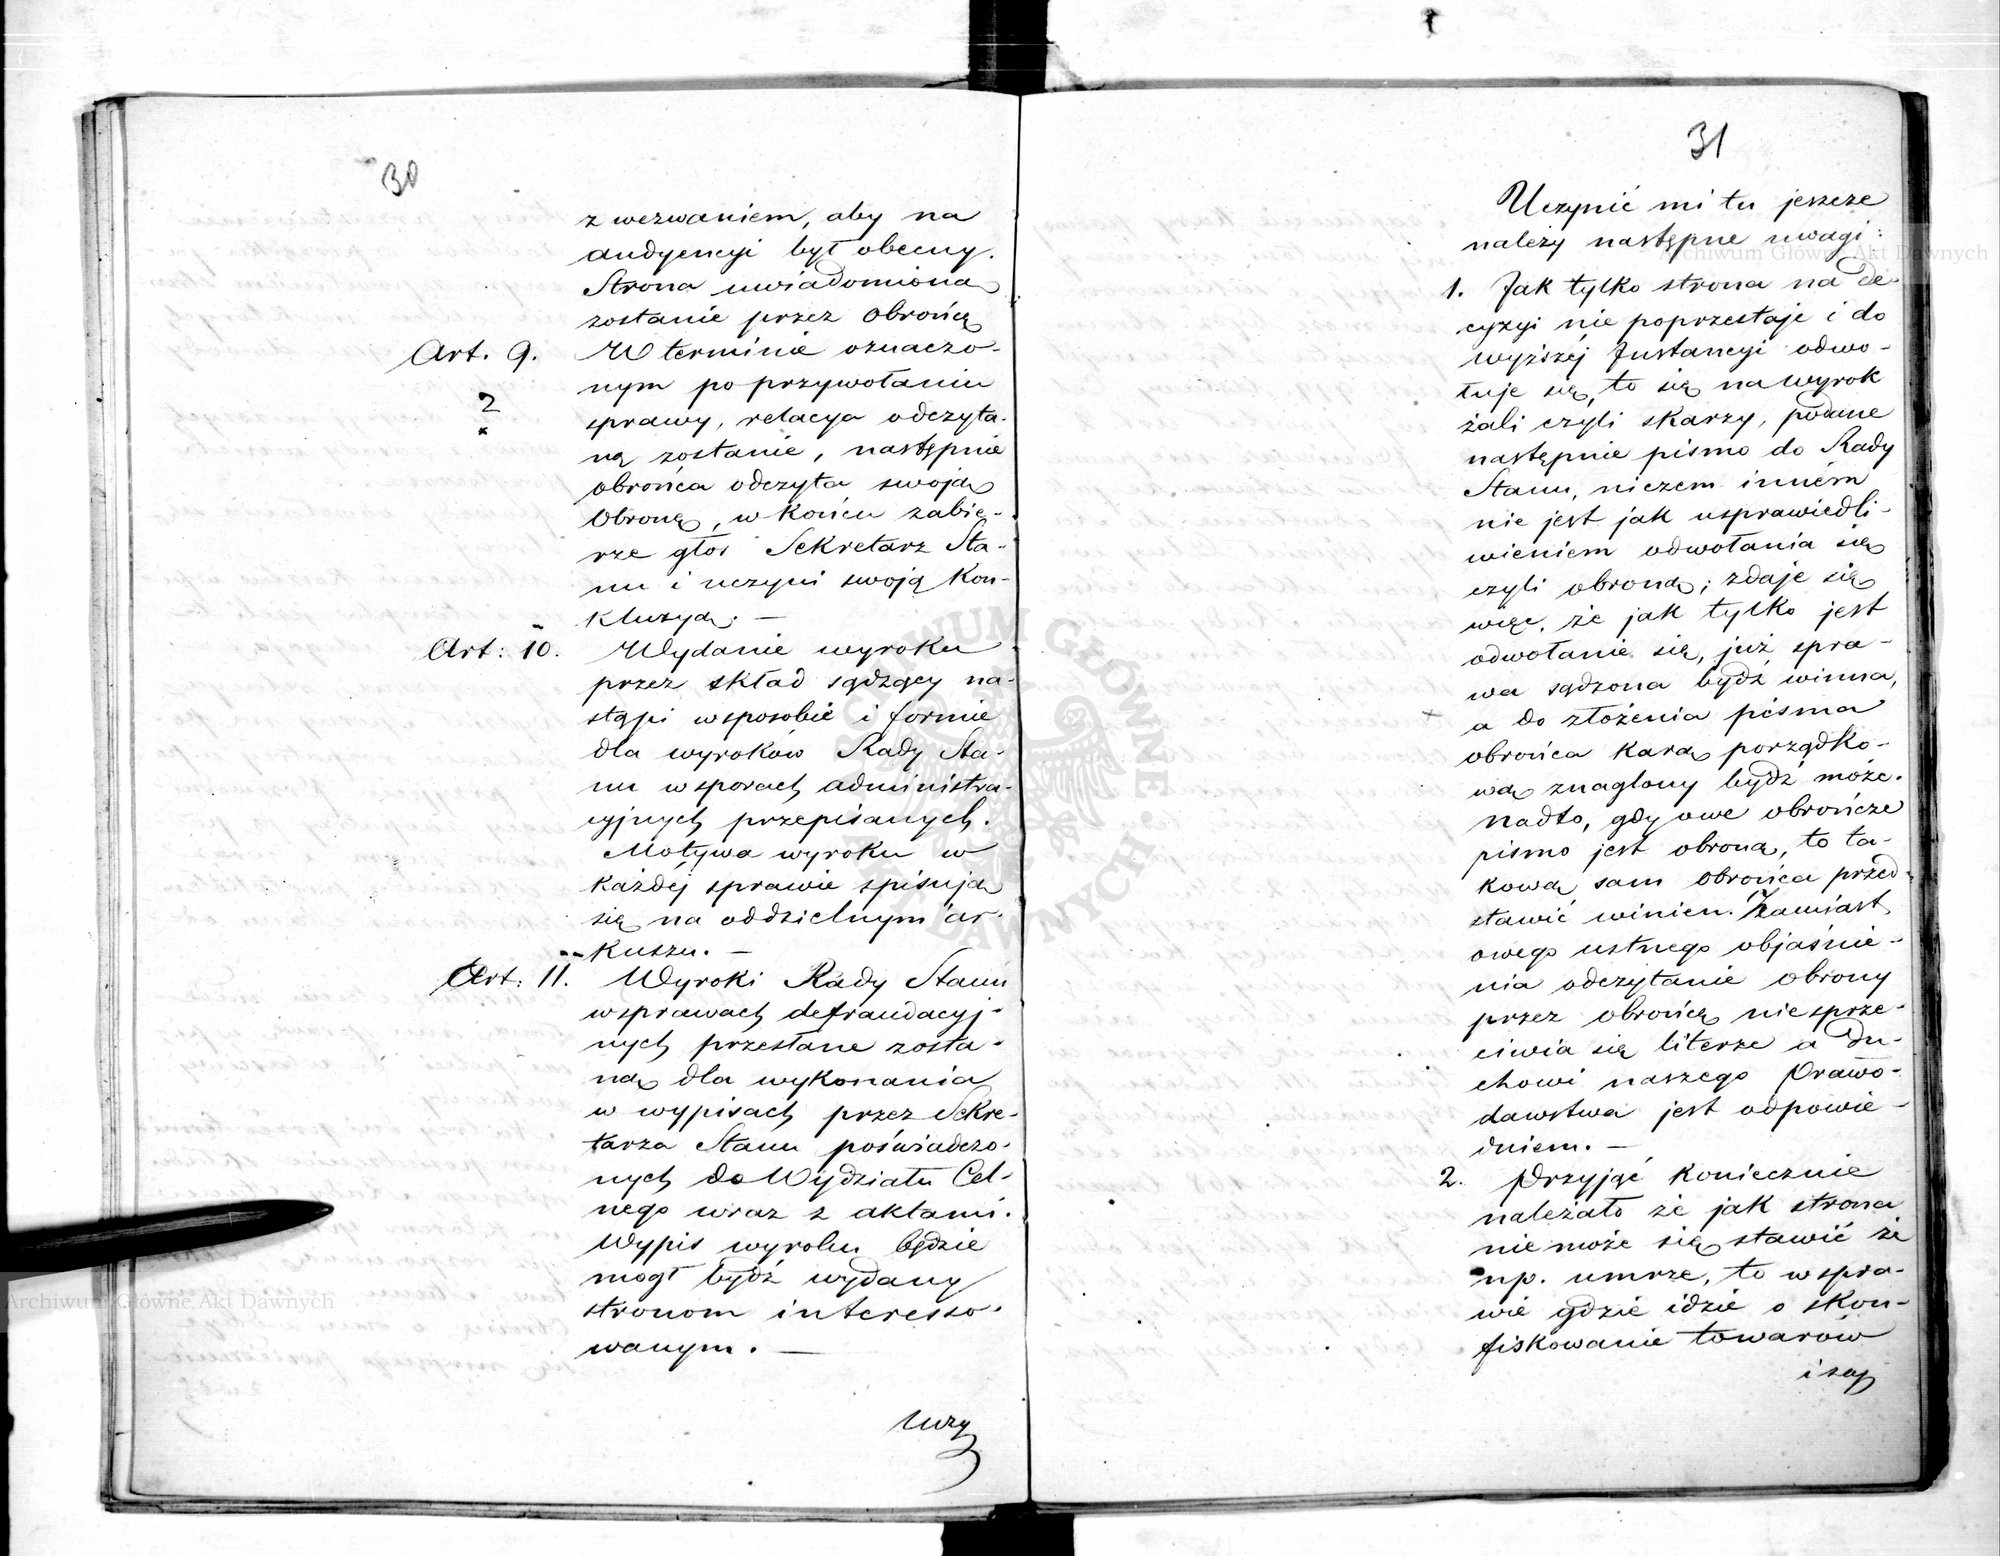 30
z wezwaniem, aby na
audyencyi był obecny.
Strona uwiadomioną
zostanie przez Obrońcę
Art. 9. W terminie oznaczo-
nym po przywołaniu
?
sprawy, relacya odczyta-
ną zostanie, następnie
obrońca odczyta swoją
Obronę, w Końcu zabie-
rze głos Sekretarz Sta-
nu i uczyni swoją Kon-
kluzyą. —
Art: 10. Wydanie wyroku
przez skład sądzący na-
stąpi w sposobie i formie
dla wyroków Rady Sta-
nu w sporach administra-
cyjnych przepisanych.
Motywa wyroku w
każdéj sprawie spisują
się na oddzielnym ar-
kuszu. —
Art: 11. Wyroki Rady Stanu
w sprawach defraudacyj-
nych przesłane zosta-
ną dla wykonania
w wypisach przez Sekre-
tarza Stanu poświadczo-
nych do Wydziału Cel-
nego wraz z aktami.
Wypis wyroku będzie
mogł bydź wydany
stronom interesso-
wanym. —
Uczy
31
Uczynić mi tu jeszcze
należy następne uwagi:
1. Jak tylko strona na de-
cyzyi nie poprzestaje i do
wyższéj Instancyi odwo-
łuje się, to się na wyrok
żali czyli skarzy, podane
następnie pismo do Rady
Stanu, niczem inném
nie jest jak usprawiedli-
wieniem odwołania się
czyli obroną; zdaje się
więc, że jak tylko jest
odwołanie się, już spra-
wa sądzona bydź winna,
a do złożenia pisma
obrońca karą porządko-
wą znaglony bydź może.
nadto, gdy owe obrończe
pismo jest obroną, to ta-
kową sam Obrońca przed-
stawić winien. Zamiast
owego ustnego objaśnie-
nia odczytanie obrony
przez obrońcę nie sprze-
ciwia się literze a du-
chowi naszego Prawo-
dawstwa jest odpowie-
dniem. —
2. Przyjąć koniecznie
należało że jak strona
nie może się stawić że
np. umrze, to w spra-
wie gdzie idzie o skon-
fiskowanie towarów
i są
Archiwum Główne Akt Dawnych
Archiwum Główne Akt Dawnych
ARCHIWUM GŁÓWNE AKT DAWNYCH